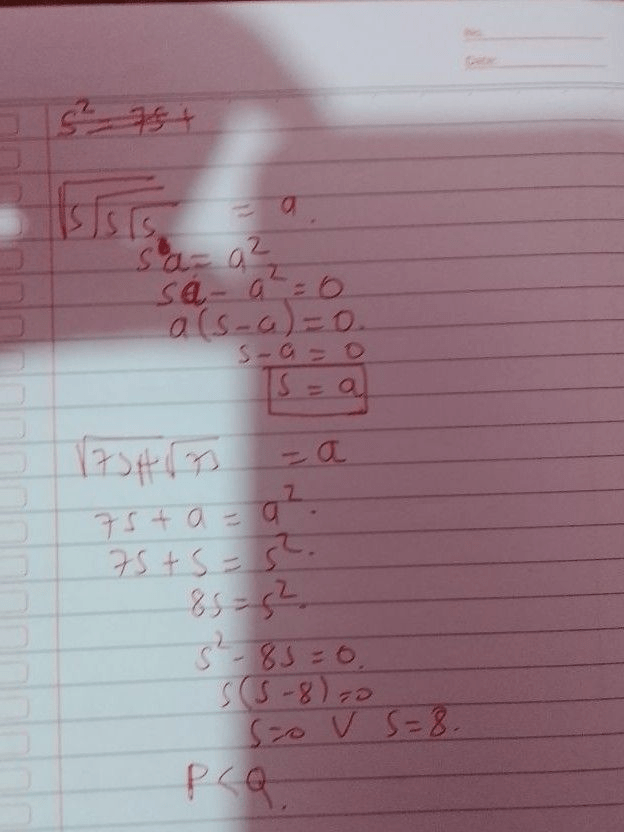 No.
Date:
s² = 7s +
√s√s√s = a.
sa = a²
sa - a² = 0
a(s-a) = 0.
s-a = 0
s = a
√7s+√7s = a
7s + a = a².
7s + s = s².
8s = s².
s² - 8s = 0.
s(s-8) = 0
s=0 V s=8.
P < Q.